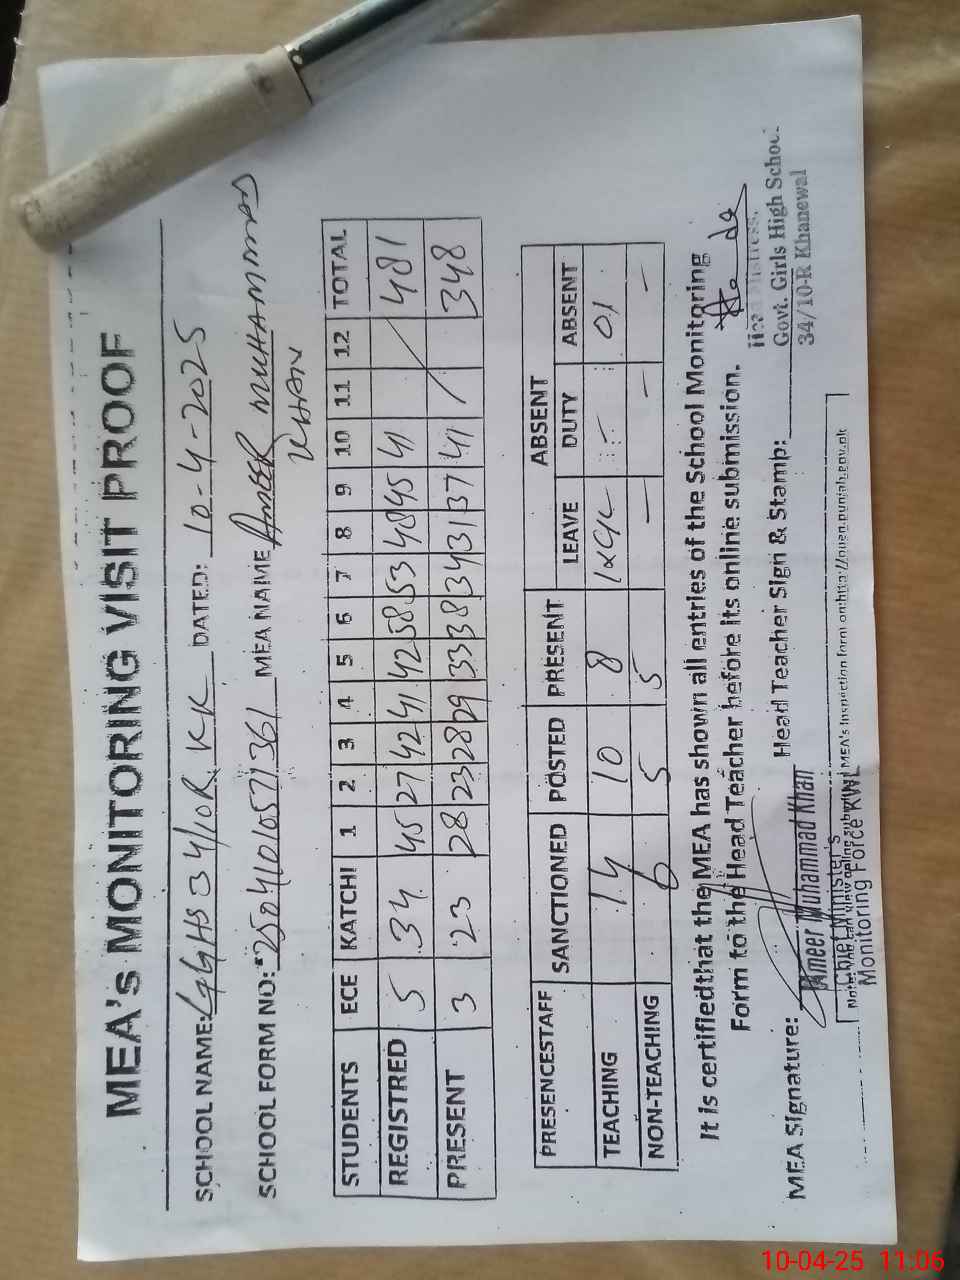 MEA's MONITORING VISIT PROOF
SCHOOL NAME: GGHS 34/10R KK DATED: 10-4-2025
SCHOOL FORM NO: 2504101057361 MEA NAME AMEER MUHAMMAD
KHAN
STUDENTS ECE KATCHI 1 2 3 4 5 6 7 8 9 10 11 12 TOTAL
REGISTRED 5 34 45 27 42 41 42 58 53 48 45 41 481
PRESENT 3 23 28 23 28 29 33 38 34 31 37 41 348
PRESENCESTAFF SANCTIONED POSTED PRESENT ABSENT
LEAVE DUTY ABSENT
TEACHING 14 10 8 – 01
NON-TEACHING 6 5 5 – – –
It is certified that the MEA has shown all entries of the School Monitoring
Form to the Head Teacher before its online submission.
MEA Signature: Head Teacher Sign & Stamp:
Ameer Muhammad Khan
Chief Minister's
Monitoring Force KWL
Headmistress,
Govt. Girls High School
34/10-R Khanewal
MEA's Inspection form on: http://open.punjab.gov.pk
10-04-25 11:06